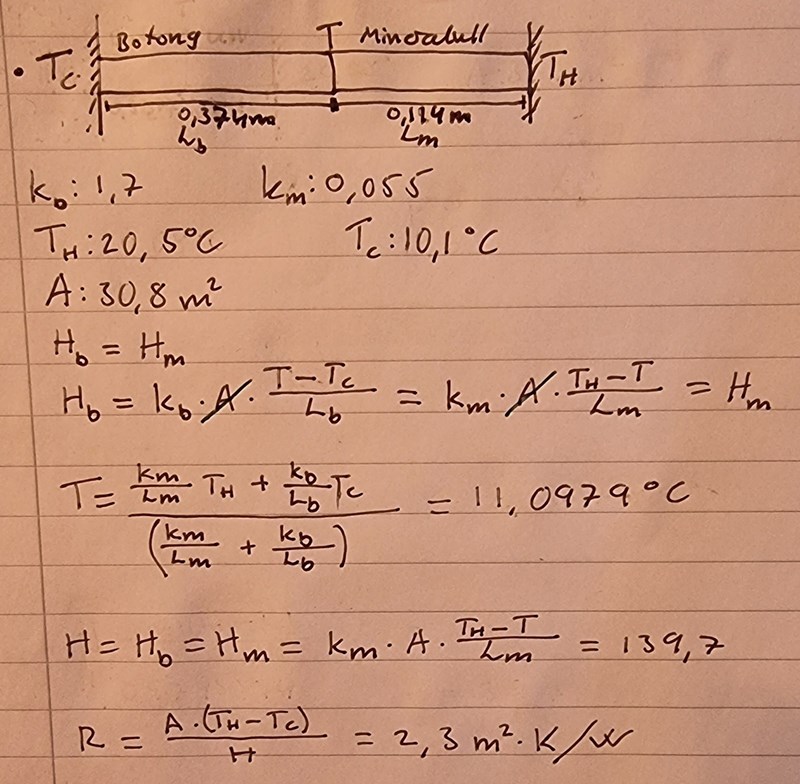 Betong T Mineralull
• T_C T_H
0,374m 0,114m
L_b L_m
k_b: 1,7 k_m: 0,055
T_H: 20,5°C T_C: 10,1°C
A: 30,8 m²
H_b = H_m
H_b = k_b · A · (T - T_C)/L_b = k_m · A · (T_H - T)/L_m = H_m
T = (k_m/L_m T_H + k_b/L_b T_C)/(k_m/L_m + k_b/L_b) = 11,0979°C
H = H_b = H_m = k_m · A · (T_H - T)/L_m = 139,7
R = A · (T_H - T_C)/H = 2,3 m² · K/W